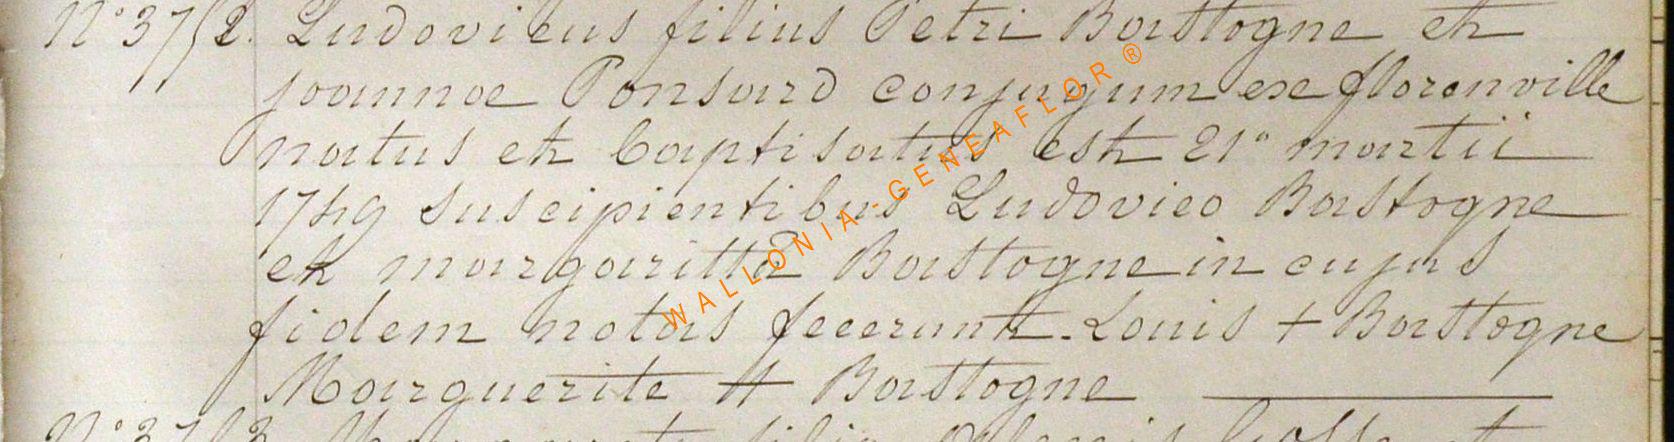 N° 37/2. Ludovicus filius Petri Bastogne et
joannae Ponsard conjugum ex florenville
natus et baptisatus est 21° martii
1749 suscipientibus Ludovico Bastogne
et margarittâ Bastogne in cujus
fidem notas fecerunt. Louis + Bastogne
Marguerite # Bastogne
N° 37/3
WALLONIA-GENEAFLOR ®